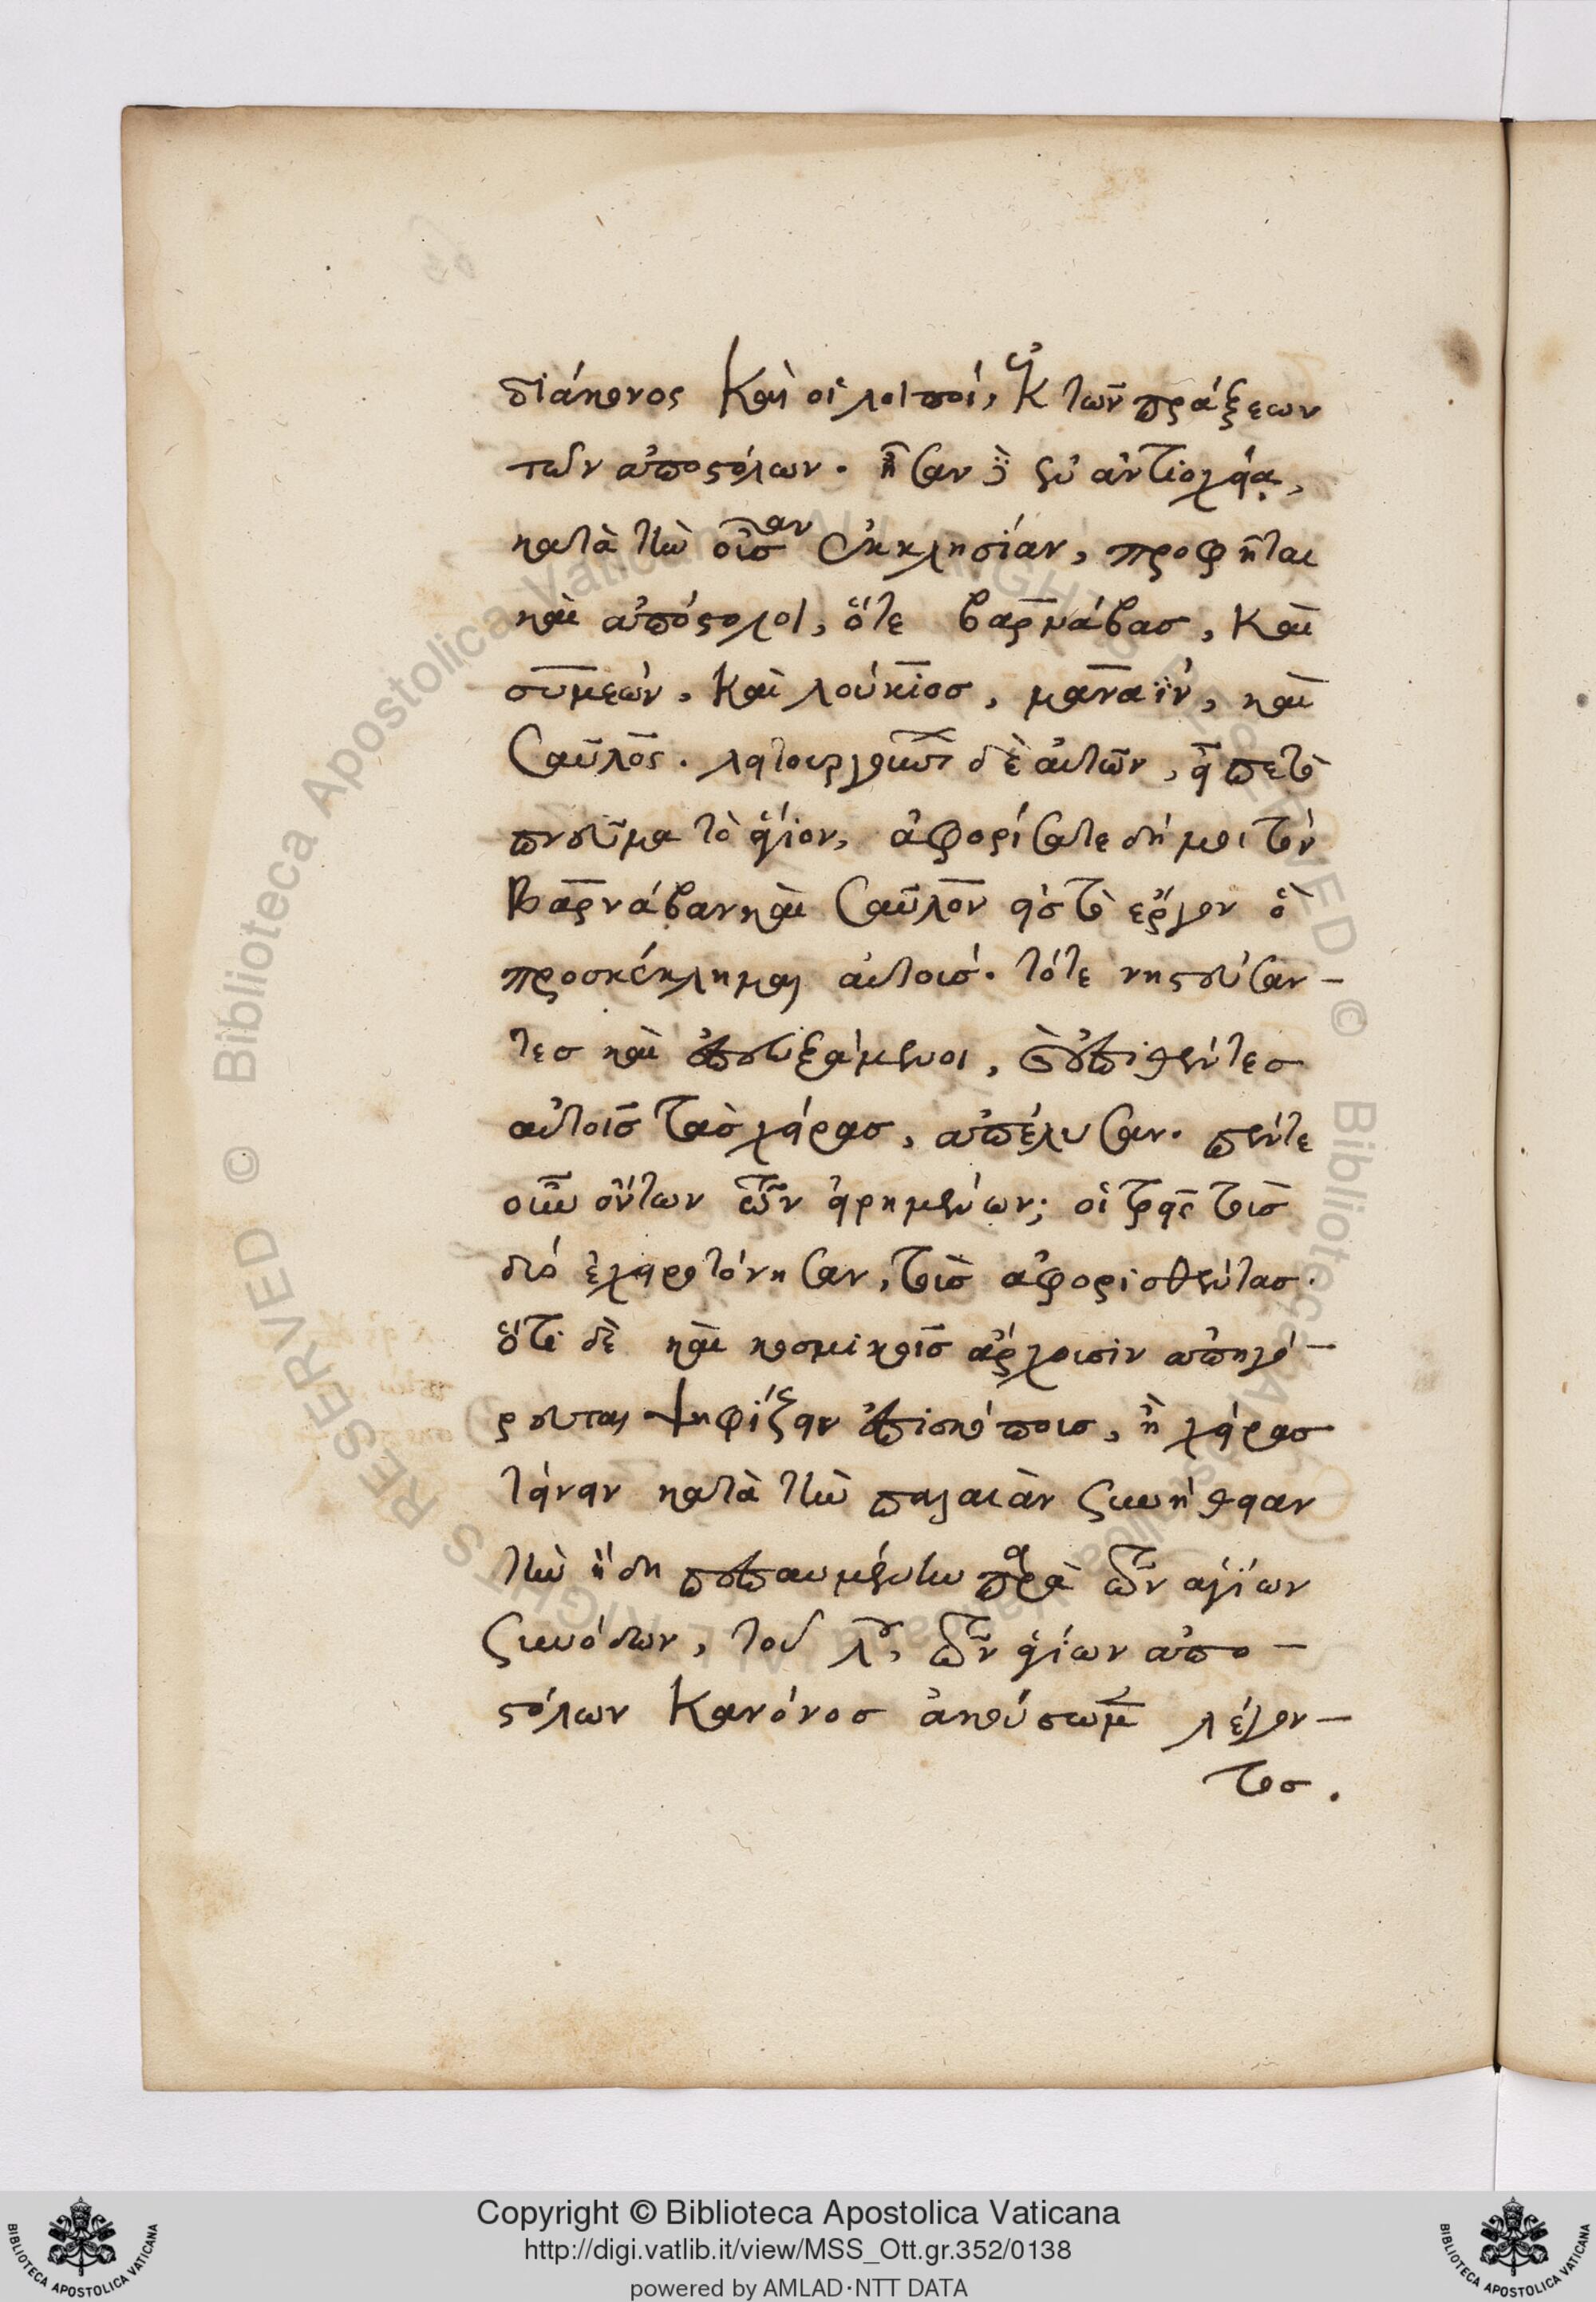 διάκονος καὶ οἱ λοιποί, ἐκ τῶν πράξεων
τῶν ἀποστόλων. ἦσαν δὲ ἐν ἀντιοχείᾳ,
κατὰ τὴν οὖσαν ἐκκλησίαν, προφῆται
καὶ ἀπόστολοι, ὅτε βαρνάβας, καὶ
συμεών, καὶ λούκιος, μαναΐν, καὶ
σαῦλος. λειτουργούντων δὲ αὐτῶν, εἶπε τὸ
πνεῦμα τὸ ἅγιον, ἀφορίσατε δή μοι τὸν
Βαρνάβαν καὶ σαῦλον εἰς τὸ ἔργον ὃ
προσκέκλημαι αὐτούς. τότε νηστεύσαν-
τες καὶ προσευξάμενοι, καὶ ἐπιθέντες
αὐτοῖς τὰς χεῖρας, ἀπέλυσαν. πέντε
οὖν ὄντων τῶν εἰρημένων; οἱ τρεῖς τοὺς
δύο ἐχειροτόνησαν, τοὺς ἀφορισθέντας.
ὅτι δὲ καὶ κοσμικοῖς ἄρχουσιν ἀπηγό-
ρευται ψηφίζειν ἐπισκόπους, ἢ χεῖρας
τείνειν κατὰ τὴν παλαιὰν συνήθειαν
τὴν ἤδη πεπαυμένην παρὰ τῶν ἁγίων
συνόδων, τοῦ λ, τῶν ἁγίων ἀπο-
στόλων κανόνος ἀκούσωμεν λέγον-
τος.
Copyright © Biblioteca Apostolica Vaticana
http://digi.vatlib.it/view/MSS_Ott.gr.352/0138
powered by AMLAD·NTT DATA